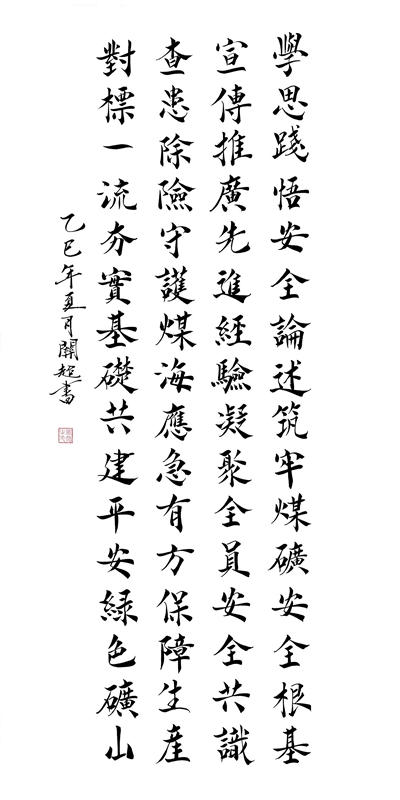 學思踐悟安全論述筑牢煤礦安全根基
宣傳推廣先進經驗凝聚全員安全共識
查患除險守護煤海應急有方保障生産
對標一流夯實基礎共建平安緑色礦山
乙巳年夏月開超書